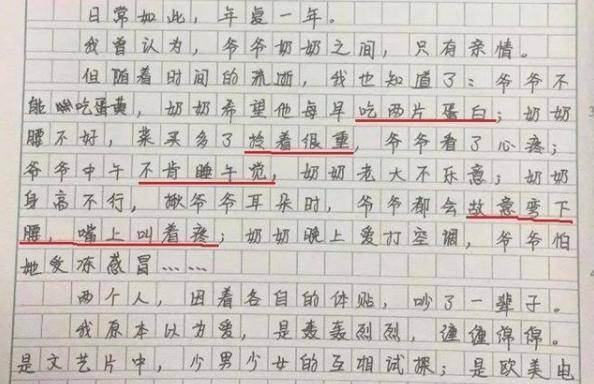 日常如此，年复一年。
我曾认为，爷爷奶奶之间，只有亲情。
但随着时间的流逝，我也知道了：爷爷不
能吃蛋黄，奶奶希望他每早吃两片蛋白；奶奶
腰不好，菜买多了拎着很重，爷爷看了心疼；
爷爷中午不肯睡午觉，奶奶老大不乐意；奶奶
身高不行，揪爷爷耳朵时，爷爷都会故意弯下
腰，嘴上叫着疼；奶奶晚上爱打空调，爷爷怕
她受冻感冒……
两个人，因着各自的体贴，吵了一辈子。
我原本以为爱，是轰轰烈烈，缠缠绵绵。
是文艺片中，少男少女的互相试探；是欧美电